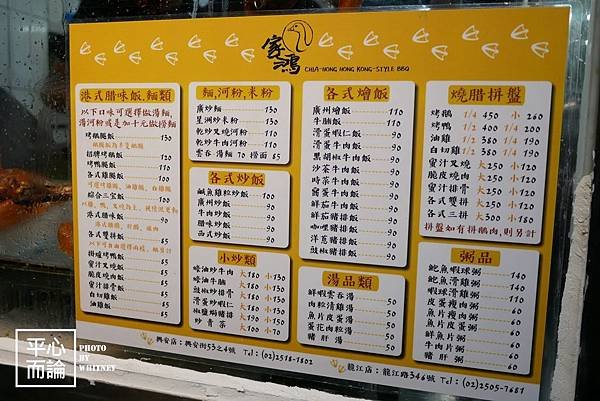 家鴻
CHIA-HONG HONG KONG-STYLE BBQ
港式腊味飯.麵類
以下口味可選擇做湯麵.
湯河粉或是加十元做撈麵
烤鵝腿飯 130
招牌烤鵝飯 120
烤鴨腿飯 110
各式雞腿飯 100
綜合三宝飯 100
港式腊味飯 90
各式雙拼飯 90
掛爐烤鴨飯 85
蜜汁叉燒飯 85
脆皮燒肉飯 85
蜜汁排骨飯 85
白切雞飯 85
油雞飯 85
麵,河粉,米粉
廣炒麵 130
星洲炒米粉 130
乾炒叉燒河粉 110
乾炒牛肉河粉 110
雲吞 湯麵 70 撈麵 85
各式炒飯
鹹魚雞粒炒飯 110
廣州炒飯 90
牛肉炒飯 90
腊味炒飯 90
西式炒飯 90
小炒類
蠔油炒牛肉 大180 小130
蠔油牛腩 大180 小130
豉椒炒排骨 大180 小130
滑蛋炒蝦仁 大180 小130
椒鹽焗豬排 大180 小130
炒青菜 大100 小70
各式燴飯
廣州燴飯 110
牛腩飯 110
滑蛋蝦仁飯 90
滑蛋牛肉飯 90
黑胡椒牛肉飯 90
沙茶牛肉飯 90
時菜牛肉飯 90
窩蛋牛肉飯 90
鮮茄牛肉飯 90
鮮茄豬排飯 90
咖哩豬排飯 90
洋蔥豬排飯 90
豉椒豬排飯 90
湯品類
鮮蝦雲吞湯 50
肉粒清雞湯 50
魚片皮蛋湯 50
蛋花肉粒湯 50
豬肝湯 50
燒腊拼盤
烤鵝 1/4 450 小 260
烤鴨 1/4 200
油雞 1/4 380 1/2 190
白切雞 1/4 380 1/2 190
蜜汁叉燒 大250 小120
脆皮燒肉 大250 小120
蜜汁排骨 大250 小120
各式雙拼 大250 小120
各式三拼 大300 小180
拼盤如有拼鵝肉,則另計
粥品
鮑魚蝦球粥 140
鮑魚滑雞粥 140
蝦球滑雞粥 110
皮蛋瘦肉粥 60
魚片瘦肉粥 60
魚片皮蛋粥 60
鮮蝦粥 60
牛肉片粥 60
豬肝粥 60
興安店：興安街53之4號 Tel：(02)2518-1802
龍江店：龍江路346號 Tel：(02)2505-7681
平心而論
PHOTO
BY
WHITNEY